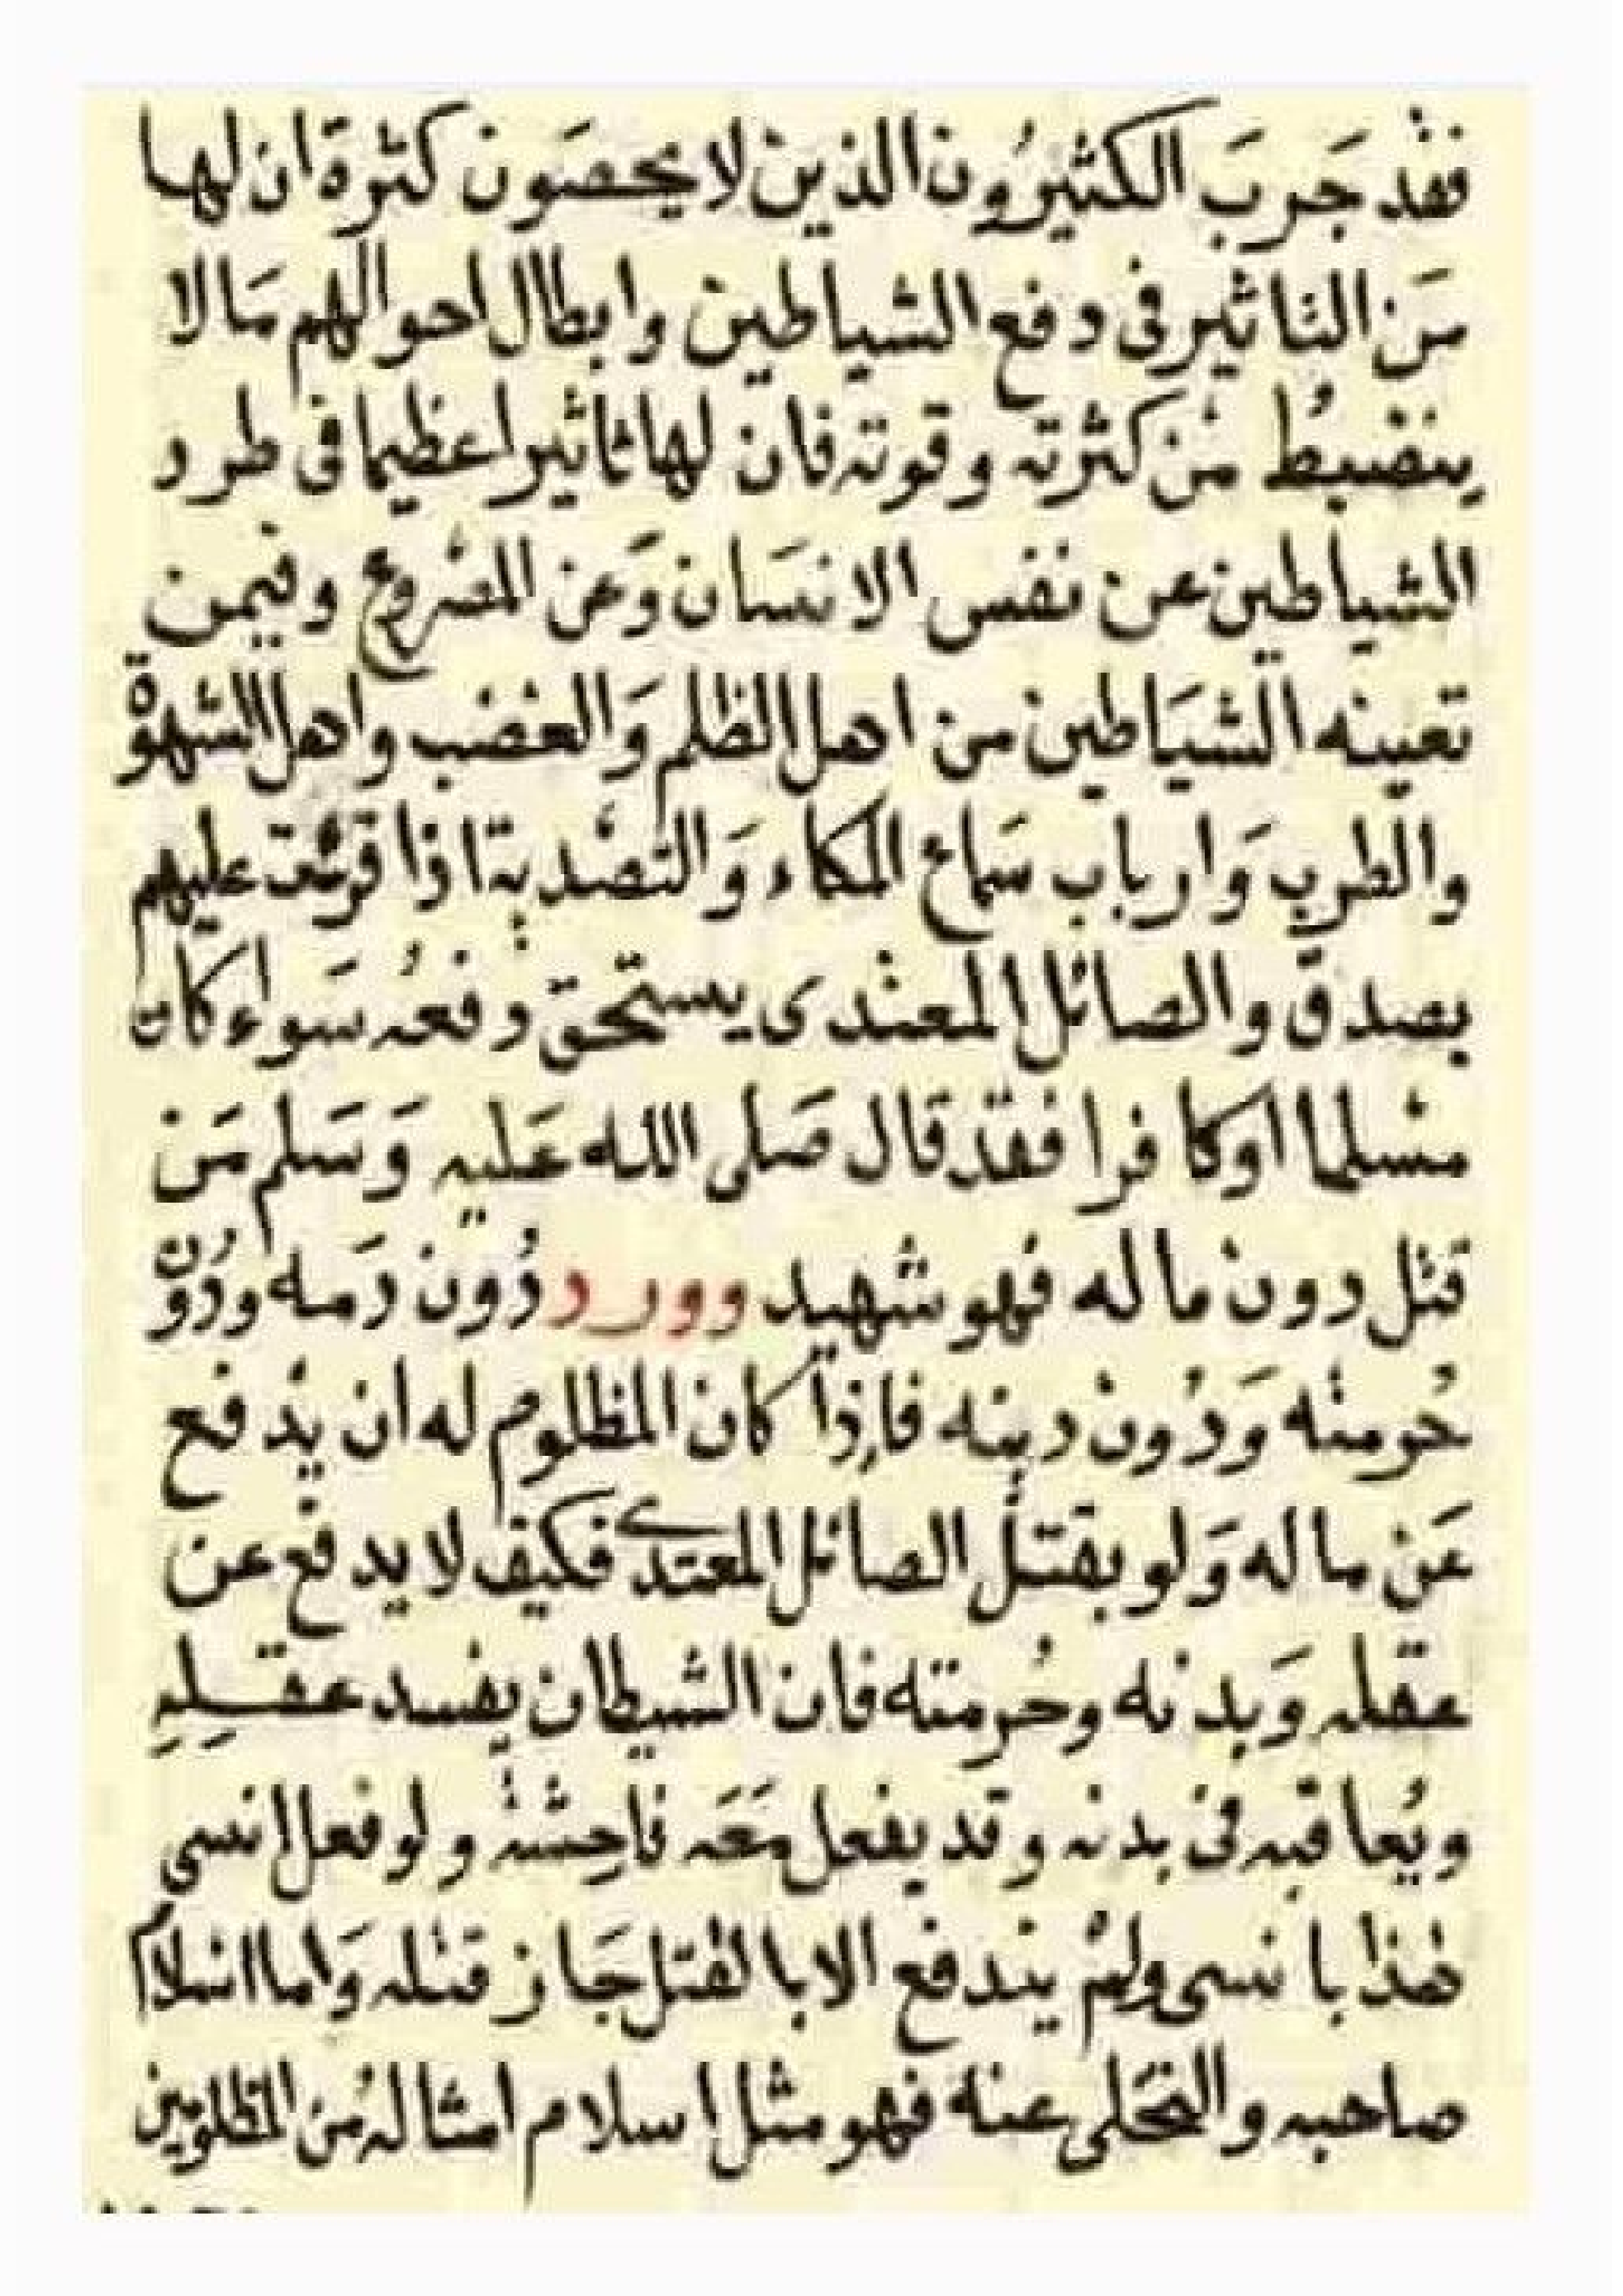 فقد جَربَ الكثيرُون الذين لا يحصَون كثرة ان لها
مَن التاثير فى دفع الشياطين وابطال احوالهم مَا لا
ينضبطُ مَن كثرته وقوته فان لها تاثيرا عظيما فى طرد
الشياطين عن نفس الانسَان وَعن المصروع وفيمن
تعينه الشيَاطين من اهل الظلم وَالغضب واهل الشهوة
والطرب وَارباب سَماع المكاء وَالتصدية اذا قرئت عليهم
بصدق والصائل المعتدى يستحق دفعهُ سَواء كان
مسْلما او كافرا فقد قال صَلى الله عَليه وَسَلم مَن
قتل دون ماله فهو شهيد وورد دُون دَمه ودُونْ
حُومته وَدُون دينه فإذا كان المظلوم له ان يدفع
عَن ماله وَلو بقتل الصائل المعتدى فكيف لا يدفع عن
عقله وَبدنه وحُرمته فان الشيطان يفسد عقلِهِ
ويُعاقبه فى بدنه وقد يفعل مَعَه فاحِشة ولو فعل انسى
هذا بانسى ولمْ يندفع الا بالقتل جَاز قتله وَاما اسلام
صاحبه والتخَلى عنه فهو مثل اسلام امثاله مُن المظلومين